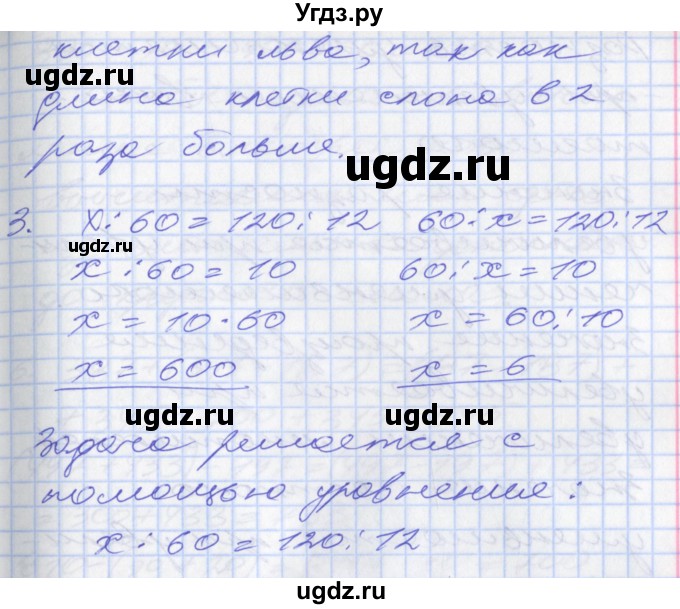 Угдз.ру
клетки льва, так как
ugdz.ru
длина клетки слона в 2
раза больше.
ugdz.ru
3. x : 60 = 120 : 12 60 : x = 120 : 12
ugdz.ru
x : 60 = 10 60 : x = 10
x = 10 · 60 x = 60 : 10
x = 600 x = 6
ugdz.ru ugdz.ru
Задача решается с
помощью уравнения:
ugdz.ru
x : 60 = 120 : 12
ugdz.ru